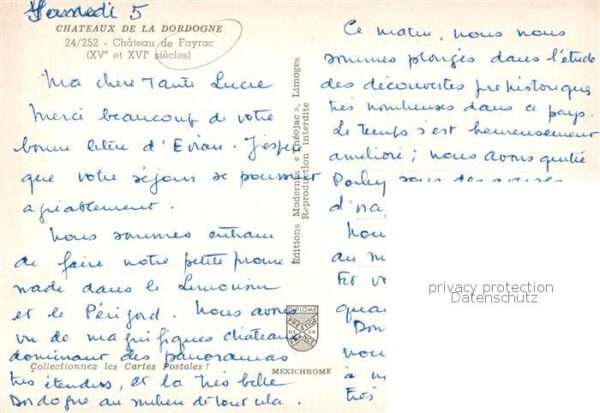 Samedi 5
CHATEAUX DE LA DORDOGNE
24/252 - Château de Fayrac
(XVe et XVIe siècles)
Ma chère Tante Lucie
Merci beaucoup de votre
bonne lettre d'Evian. J'espère
que votre séjour se poursuit
agréablement.
Nous sommes entrain
de faire notre petite prome
nade dans le Limousin
et le Périgord. Nous avons
vu de magnifiques chateaux
dominant des panoramas
Collectionnez les Cartes Postales !
très étendus, et la très belle
Dordogne au milieu de tout cela.
Editions Modernes « Théojac », Limoges
Reproduction interdite
MEXICHROME
Ce matin, nous nous
sommes plongés dans l'étude
des découvertes préhistoriques
très nombreuses dans ce pays.
Le temps s'est heureusement
amélioré ; nous avons quitté
sous des
d'
Nou
au m
Et v
quan
Don
vou
à m
très
privacy protection
Datenschutz